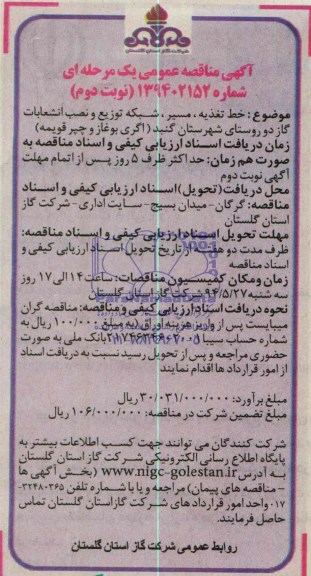 شرکت گاز استان گلستان
آگهی مناقصه عمومی یک مرحله ای
شماره ۱۳۹۴۰۲۱۵۲ (نوبت دوم)
موضوع: خط تغذیه، مسیر، شبکه توزیع و نصب انشعابات
گاز دو روستای شهرستان گنبد (اگری بوغاز و چپر قویمه)
زمان دریافت اسناد ارزیابی کیفی و اسناد مناقصه به
صورت هم زمان: حداکثر ظرف ۵ روز پس از اتمام مهلت
آگهی نوبت دوم
محل دریافت (تحویل) اسناد ارزیابی کیفی و اسناد
مناقصه: گرگان- میدان بسیج- سایت اداری- شرکت گاز
استان گلستان
مهلت تحویل اسناد ارزیابی کیفی و اسناد مناقصه:
ظرف مدت دو هفته از تاریخ تحویل اسناد ارزیابی کیفی و
اسناد مناقصه
زمان ومکان کمیسیون مناقصات: ساعت ۱۴ الی ۱۷ روز
سه شنبه ۹۴/۵/۲۷ شرکت گاز استان گلستان
نحوه دریافت اسناد ارزیابی کیفی و مناقصه: مناقصه گران
میبایست پس از واریز هزینه اوراق (به مبلغ ۱۰۰/۰۰۰ ریال به
شماره حساب سیبا بانک ملی به صورت
حضوری مراجعه و پس از تحویل رسید نسبت به دریافت اسناد
از امور قرارداد ها اقدام نمایند
مبلغ برآورد: ۳۰/۰۳۱/۰۰۰/۰۰۰ ریال
مبلغ تضمین شرکت در مناقصه: ۱۰۶/۰۰۰/۰۰۰ ریال
شرکت کنندگان می توانند جهت کسب اطلاعات بیشتر به
پایگاه اطلاع رسانی الکترونیکی شرکت گاز استان گلستان
به آدرس www.nigc-golestan.ir (بخش آگهی ها
- مناقصه های پیمان) مراجعه و یا با شماره تلفن ۳۲۴۸۰۳۶۵-
۰۱۷ واحد امور قرارداد های شرکت گاز استان گلستان تماس
حاصل فرمایند.
روابط عمومی شرکت گاز استان گلستان